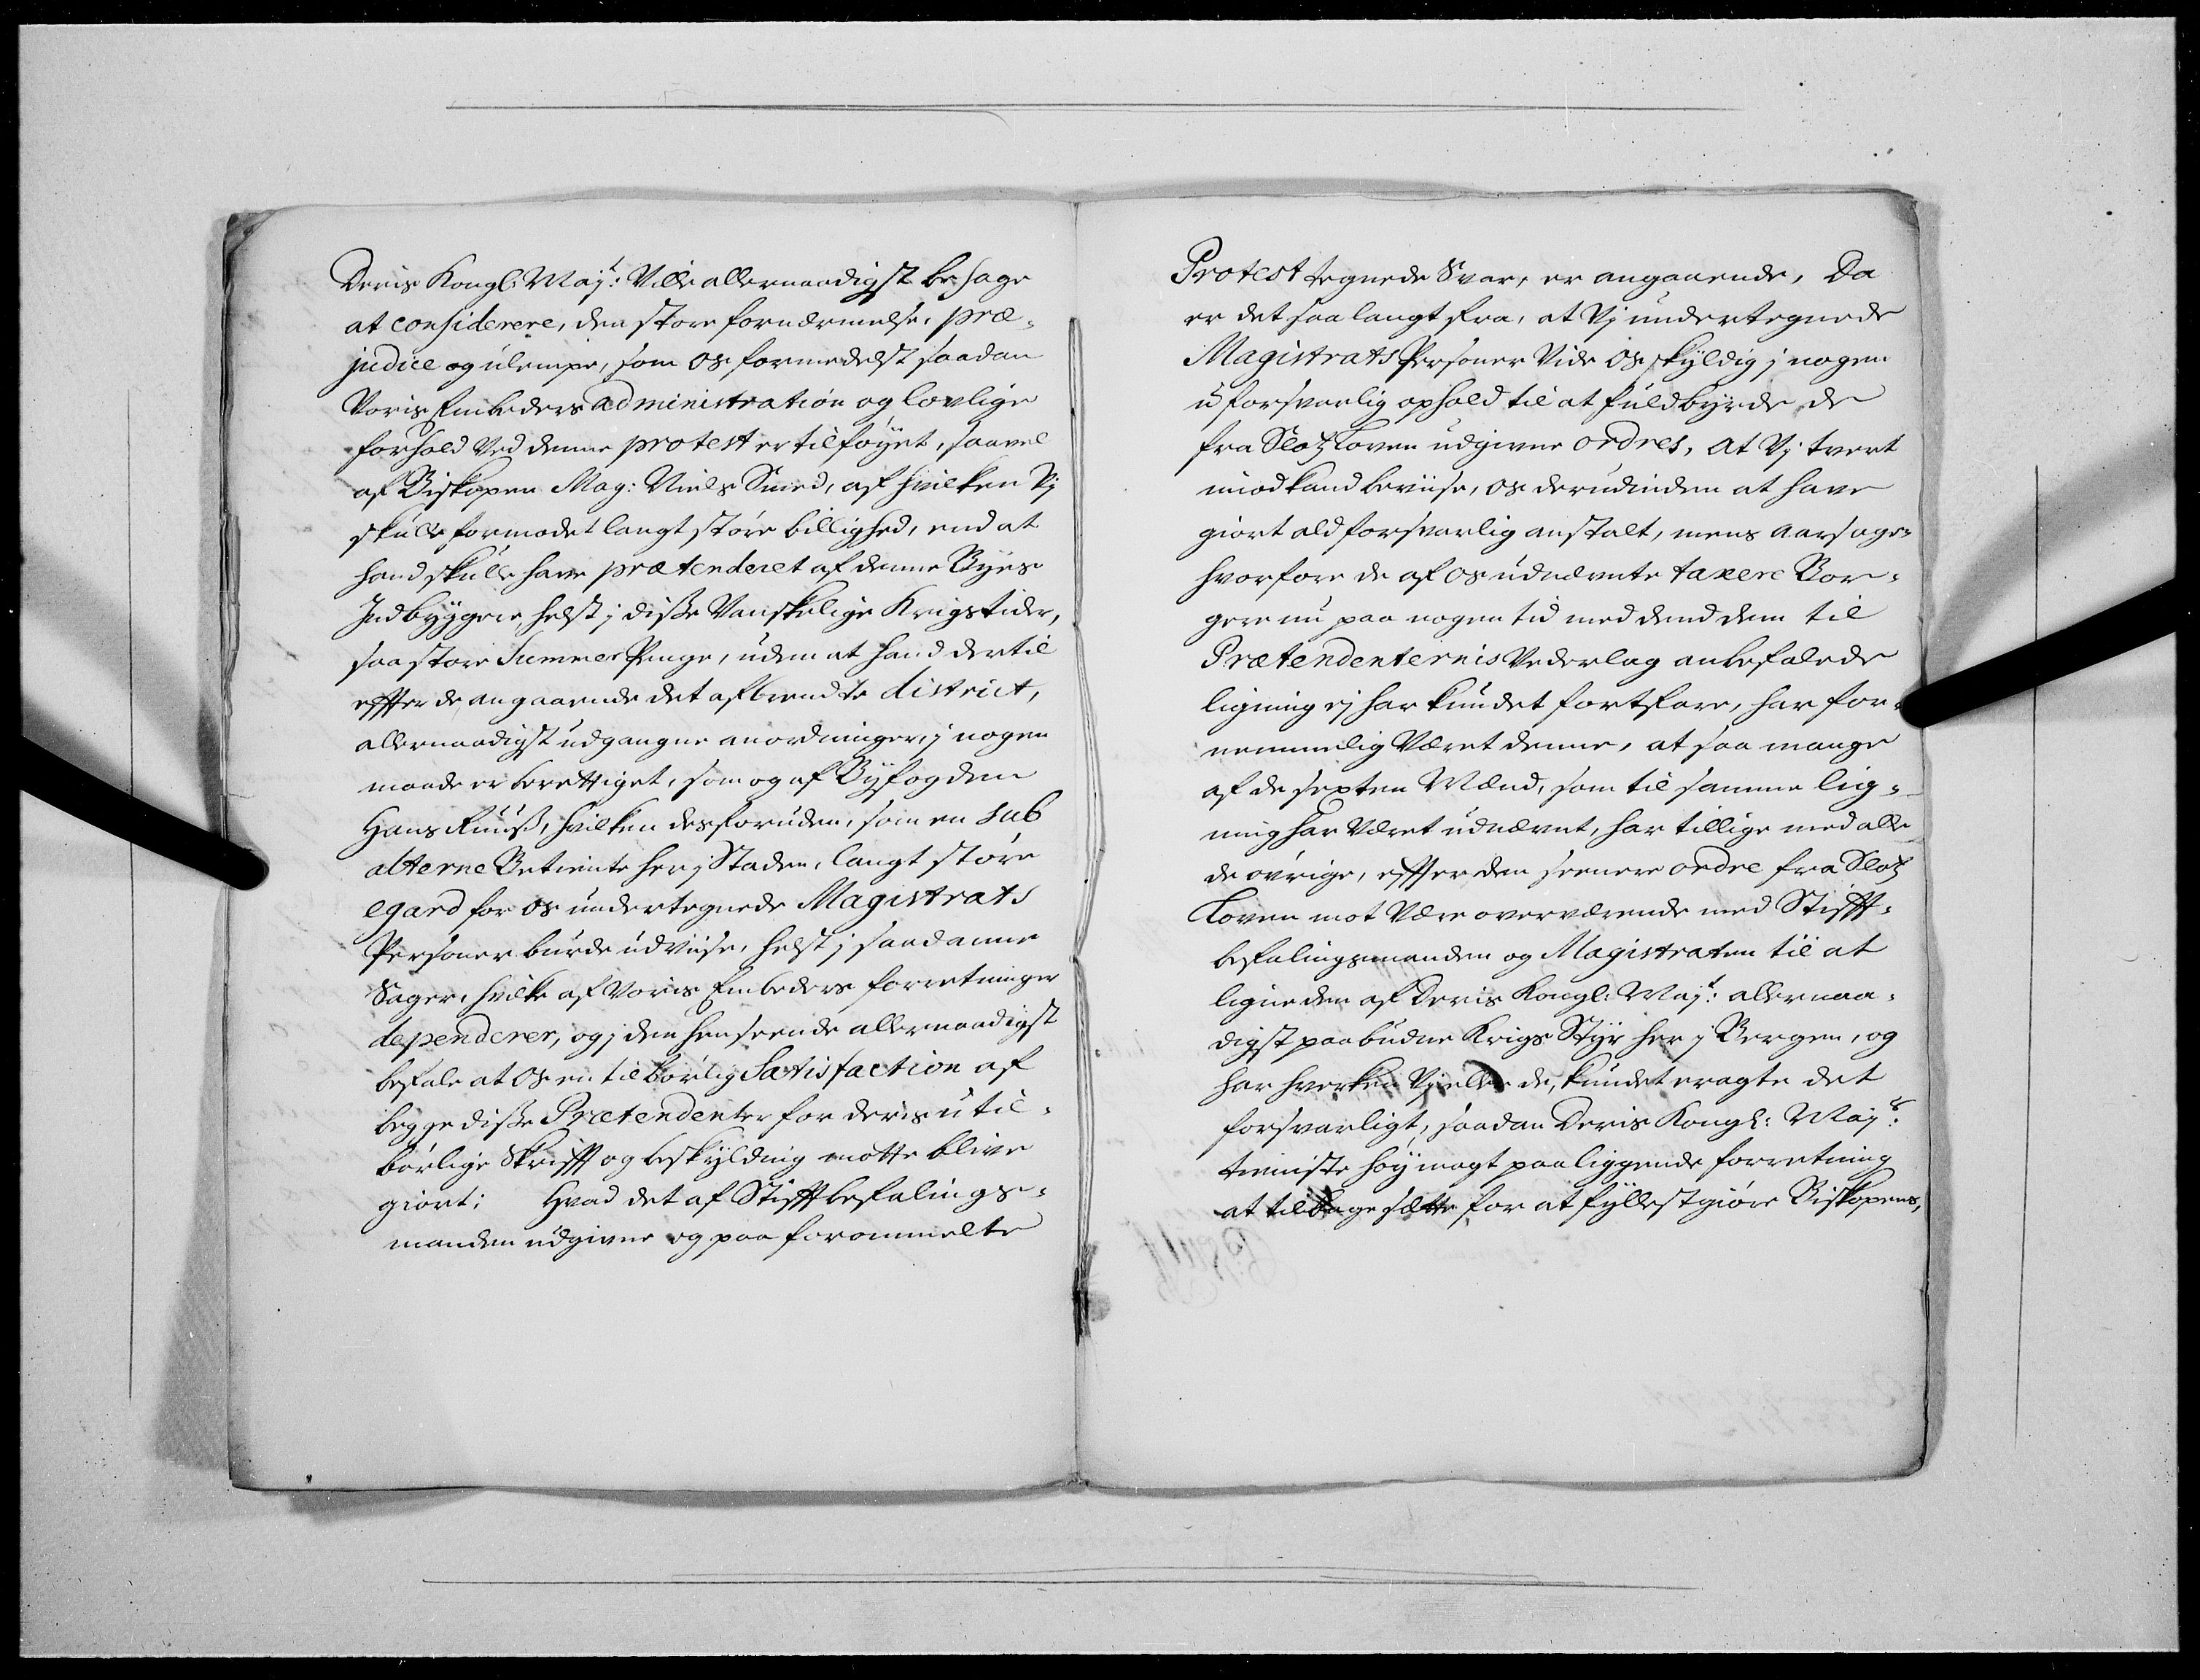 Deris Kongl: Mayt: Ville allernaadigst behage
at considerere, den store fornærmelse, præ-
judice og ulempe, som os formedelst saadan
Voris Embeders administration og lovlige
forhold Ved denne protest er tilføyet, saavel
af Biskopen Mag: Niels Smed, af hvilken Vj
skulle formodet langt støre billighed, end at
hand skulle have prætenderet af denne Byes
Indbyggere, helst j diße Vanskelige Krigstider,
saa store Summer Penge, uden at hand dertil
effter de angaaende det afbrendte district,
allernaadigst udgangne anordninger, j nogen
maade er berettiget, som og af Byfogden
Hans Kruuß, hvilken desforuden, som en sub
alterne Betiente her j Staden, langt støre
egard for os undertegnede Magistrats
Personer burde udviise, helst j saadanne
Sager, hvilke af Voris Embeders forretninger
dependerer, og j den henseende allernaadigst
befale at os en tilbørlig Satisfaction af
begge diße Prætendenter for deris util-
børlige Skrifft og beskyldning motte blive
giort: Hvad det af Stifftbefalings-
manden udgivne og paa forommelte
Protest tegnede Svar, er angaaende, Da
er det saa langt fra, at Vj undertegnede
Magistrats Personer Vide os skyldig j nogen
uforsvarlig ophold til at fuldbyrde de
fra Slotzloven udgivne ordres, at Vj tvert
imod kand beviise, os derudinden at have
giort ald forsvarlig anstalt, mens aarsage-
hvorfore de af os udnævnte taxere Bor-
gere nu paa nogen tid med dend dem til
Prætendenternis Vederlag anbefalede
ligning ej har kundet fortfare, har for-
nemmelig Været denne, at saa mange
af de sexten Mænd, som til samme lig-
ning har Været udnævnt, har tillige med alle
de øvrige, effter den seenere ordre fra Slotz
loven mot Være overværende med Stifft-
befalingsmanden og Magistraten til at
ligne den af Deris Kongl: Mayt: allernaa-
digst paabudne Krigs Styr her j Bergen, og
har hverken Vj eller de, kundet eragte det
forsvarligt, saadan Deris Kongl: Mayts:
tieniste høymagt paaliggende forretning
at tilbage sætte for at fyllestgiøre Biskopens,